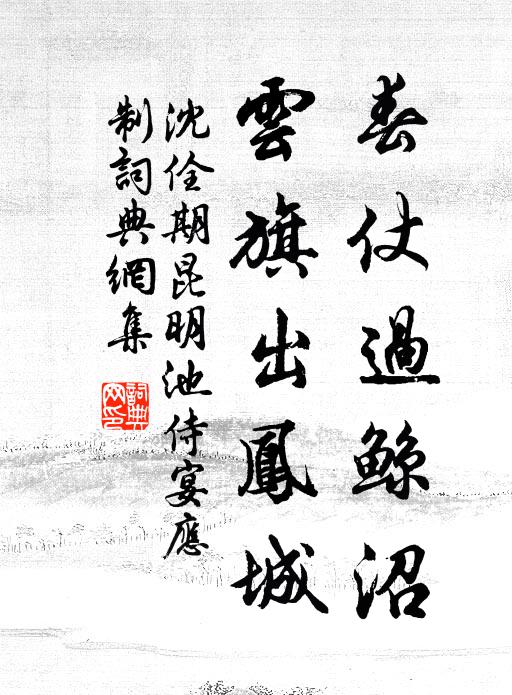 春仗過鯨沼
雲旗出鳳城
沈佺期昆明池侍宴應
制詞典網集
詞典
網印